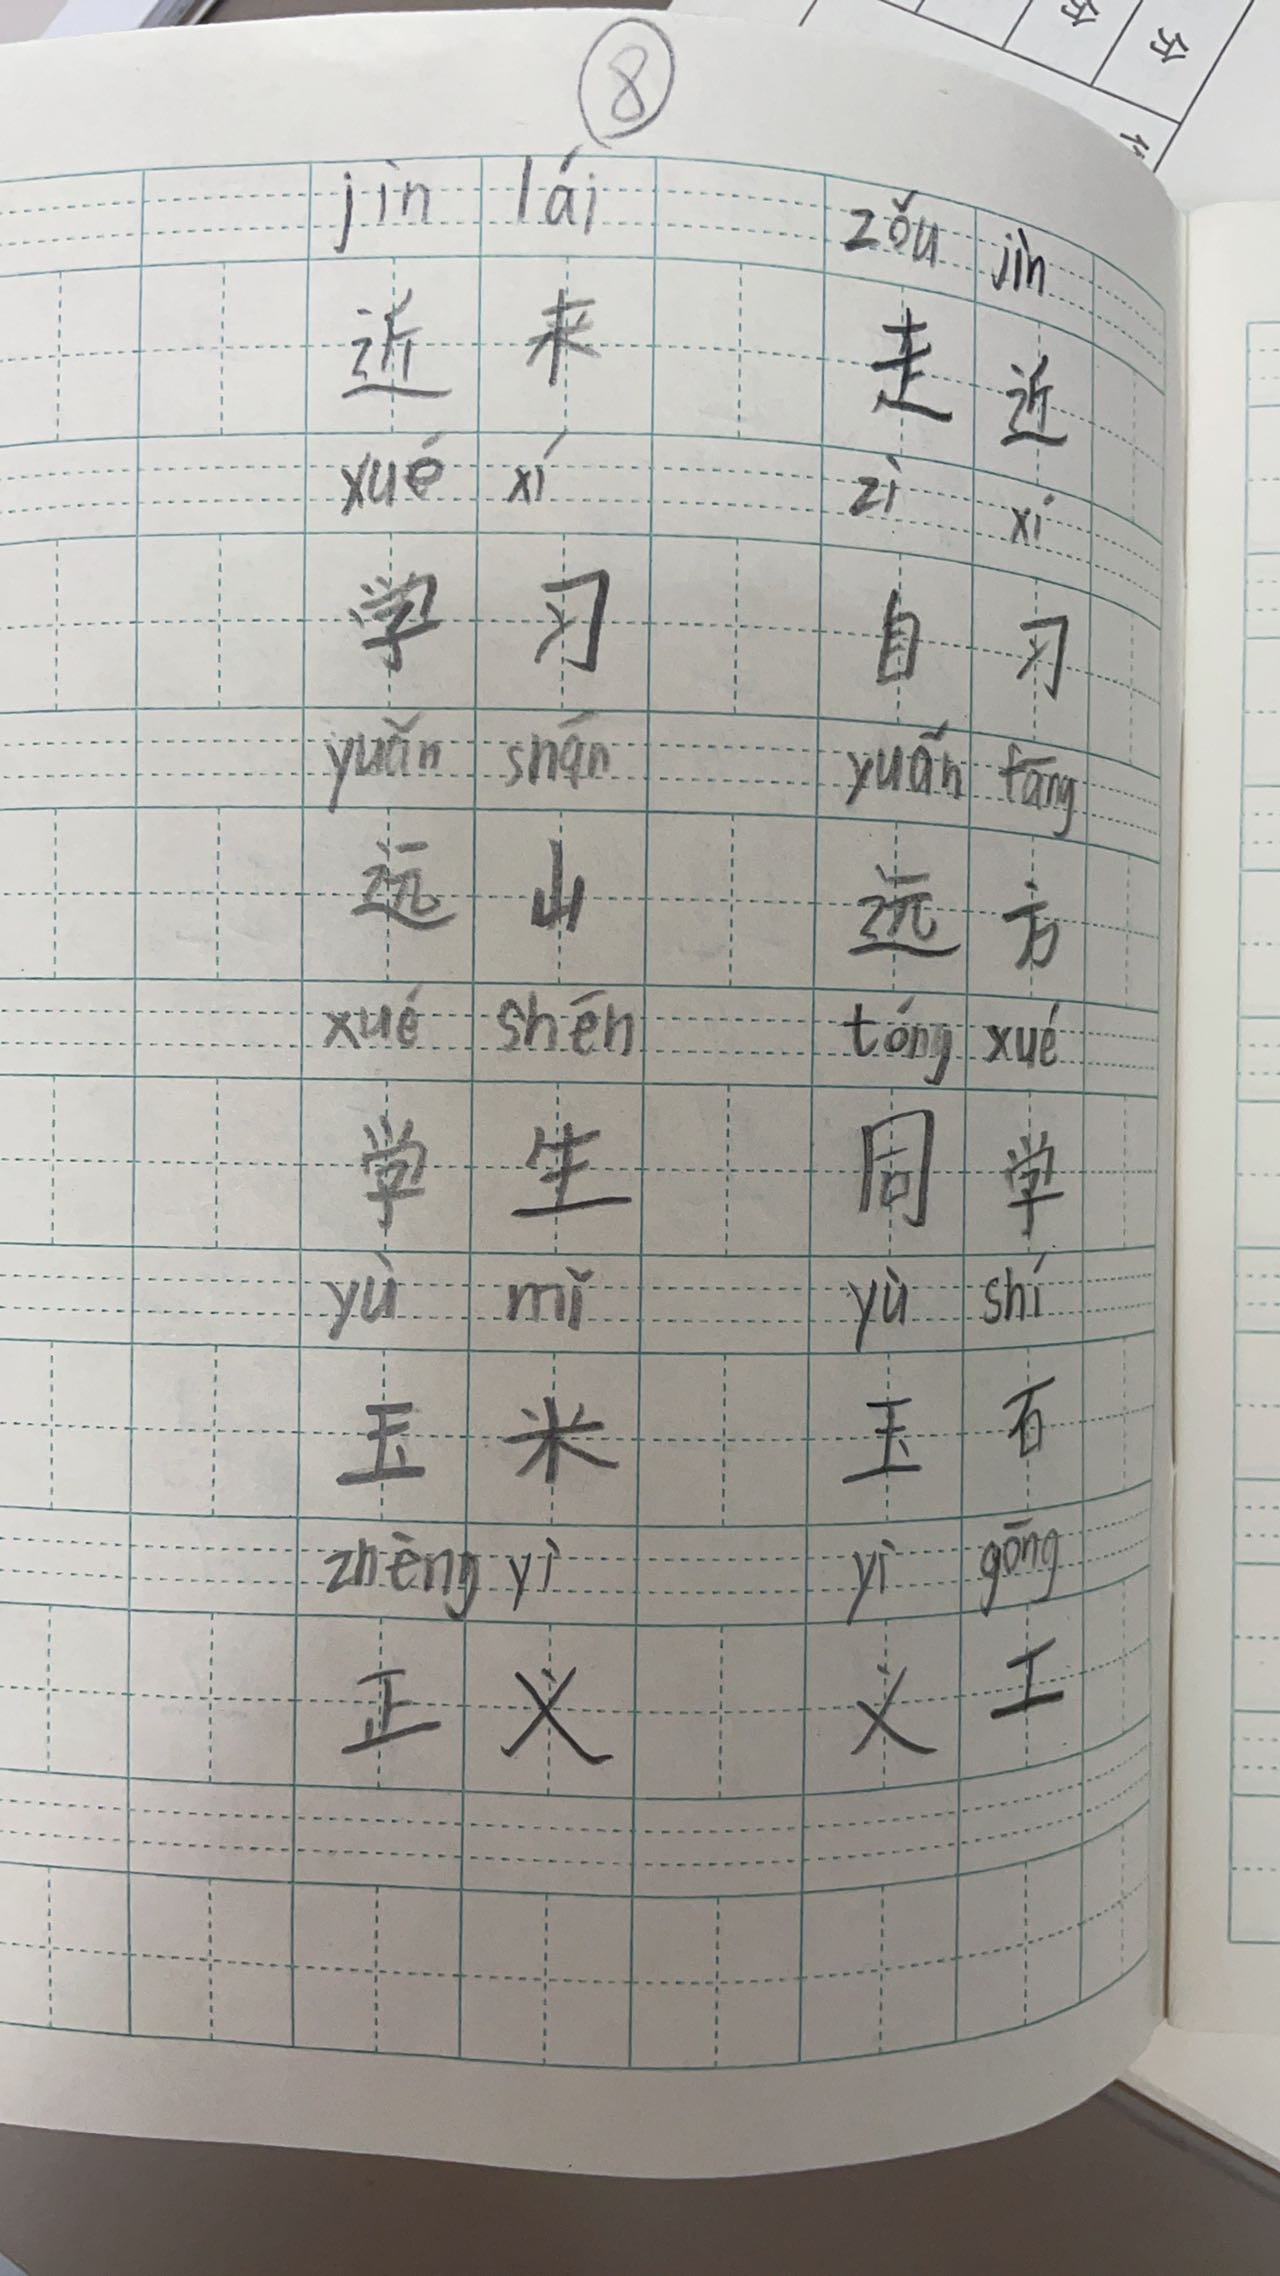 分 分
⑧
jìn lái zǒu jìn
近 来 走 近
xué xí zì xí
学 习 自 习
yuǎn shān yuǎn fāng
远 山 远 方
xué shēn tóng xué
学 生 同 学
yù mǐ yù shí
玉 米 玉 石
zhèng yì yì gōng
正 义 义 工